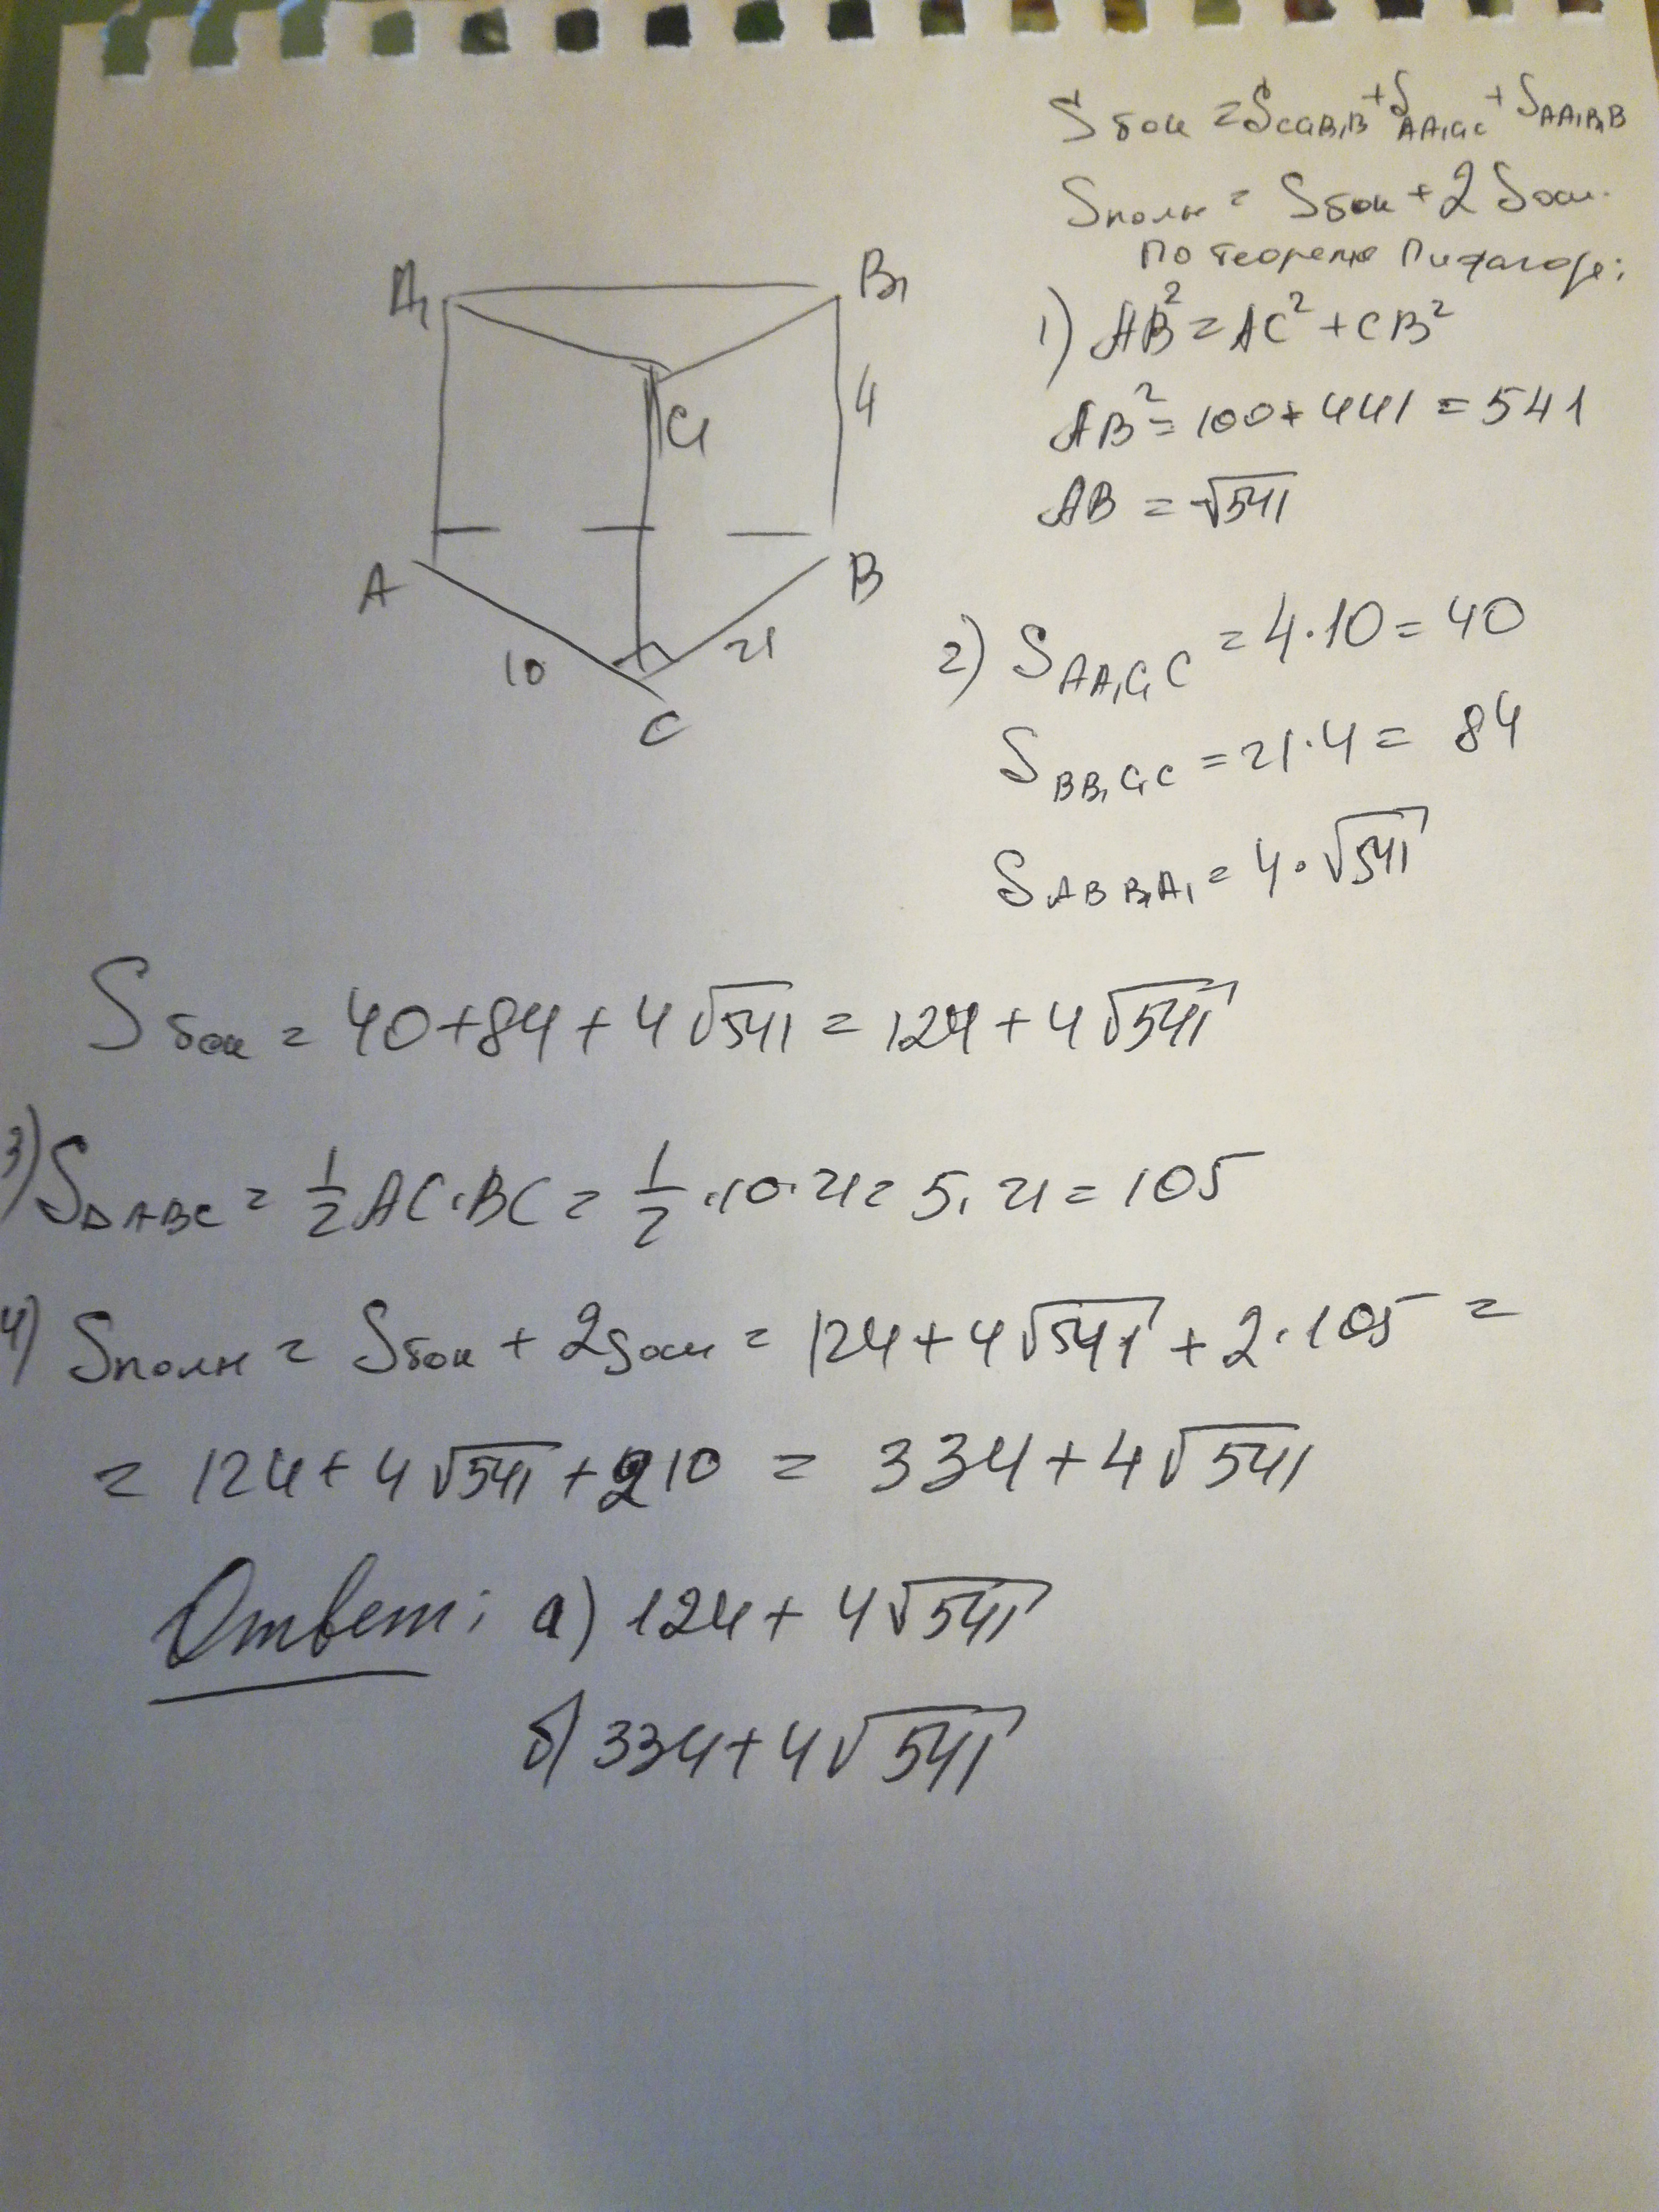 Sбок = SCC₁B₁B + SAA₁C₁C + SAA₁B₁B
Sполн = Sбок + 2 Sосн.
По теореме Пифагора:
A₁
B₁
C₁
4
A
B
10
21
C
1) AB² = AC² + CB²
AB² = 100 + 441 = 541
AB = √541
2) SAA₁C₁C = 4·10 = 40
SBB₁C₁C = 21·4 = 84
SABB₁A₁ = 4·√541
Sбок = 40+84+4√541 = 124+4√541
3) S△ABC = 1/2 AC·BC = 1/2·10·21 = 5·21 = 105
4) Sполн = Sбок + 2Sосн = 124+4√541 + 2·105 =
= 124+4√541+210 = 334+4√541
Ответ: а) 124+4√541
б) 334+4√541